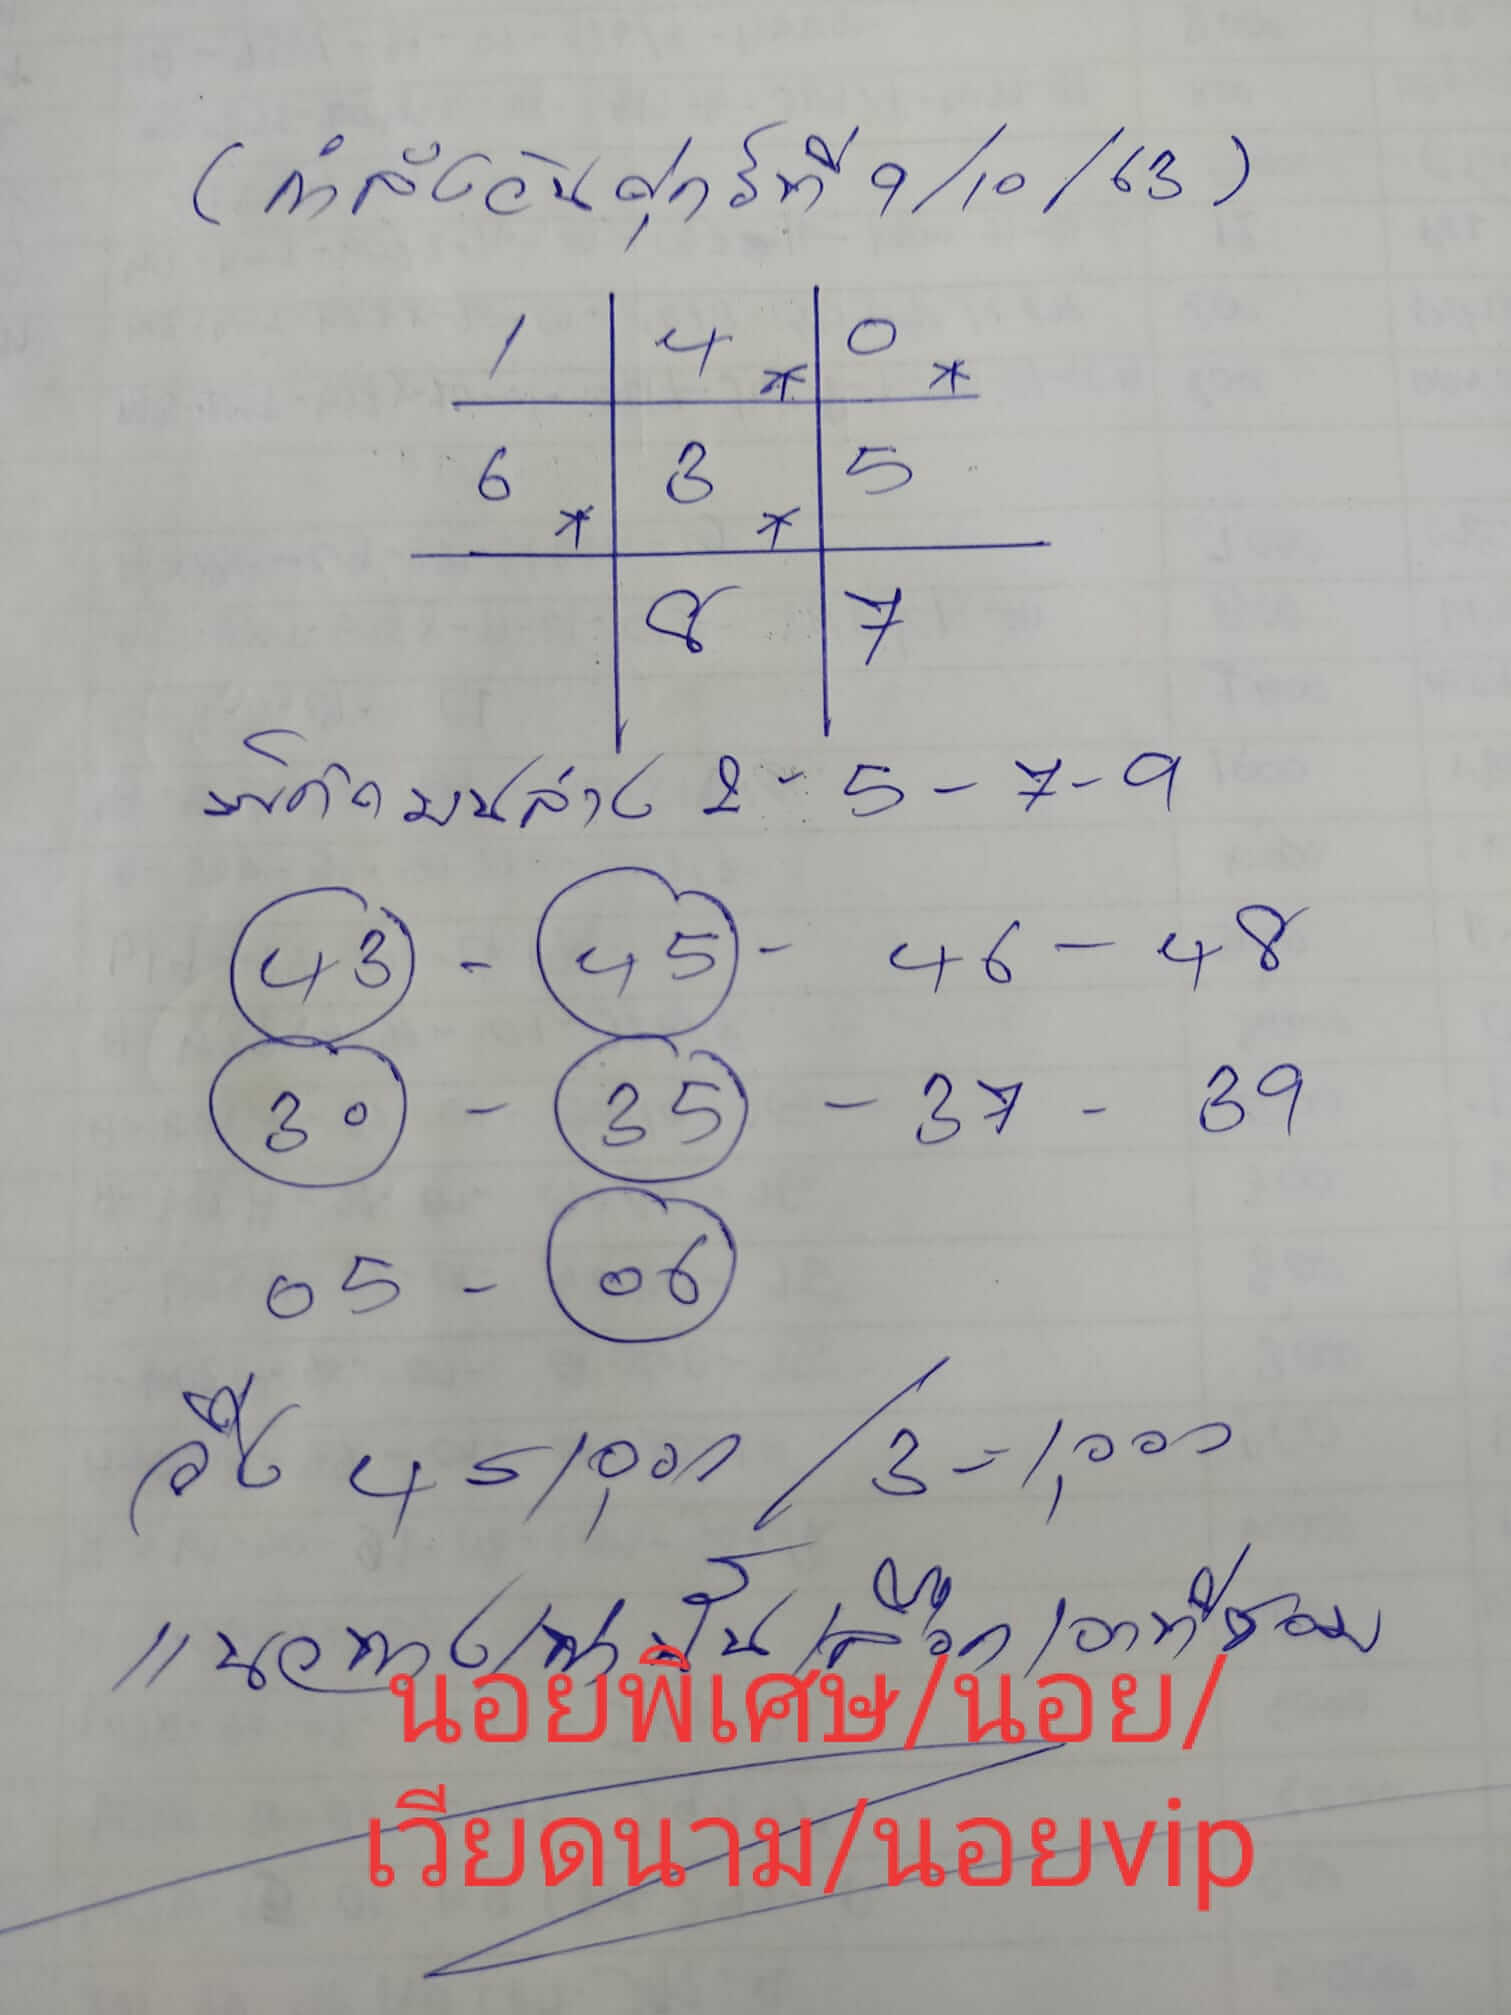 (กำลังวันศุกร์ที่ 9/10/63)
1 4 * 0 *
6 * 3 * 5
8 7
พิกัดบนล่าง 2 - 5 - 7 - 9
43 - 45 - 46 - 48
30 - 35 - 37 - 39
05 - 06
4 5 / 3 = 1,000
แนวทางเท่านั้น เลือกเอาที่ชอบ
นอยพิเศษ/นอย/
เวียดนาม/นอยvip